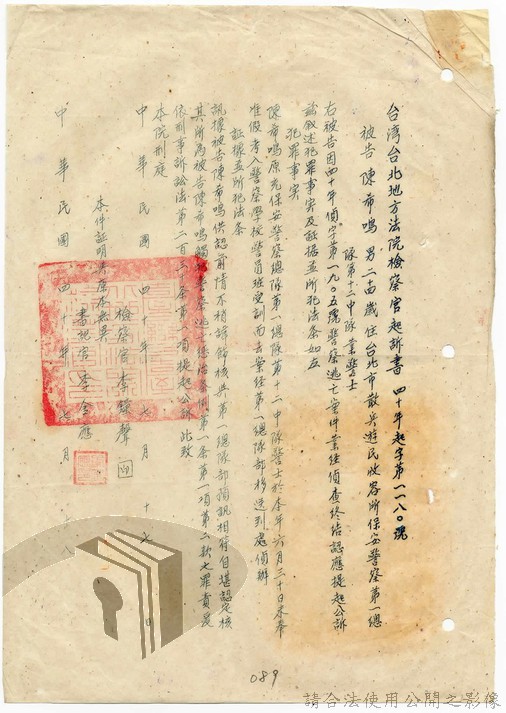 台湾台北地方法院檢察官起訴書 四十年起字第一一八〇號
被告 陳希鳴 男二十四歲住台北市散兵遊民收容所保安警察第一總
隊第十二中隊 業警士
右被告因四十年偵字第一九〇五號警察逃亡案件業經偵查終结認應提起公訴
茲敘述犯罪事实及証據並所犯法条如左
犯罪事实
陳希鳴原充保安警察總隊第一總隊第十二中隊警士於本年六月三十日未奉
准假考入警察學校警員班受訓而去案经第一總隊部移送到處偵辦
証據並所犯法条
訊據被告陳希鳴供認前情不稍諱飾核與第一總隊部 相符自堪認定核
其所為被告陳希鳴觸 警察逃亡 條例第一条第一項第二款之罪責爰
依刑事訴訟法第二百三十条第一項提起公訴此致
本院刑庭
中華民國四十年七月十七日
檢察官 李 聲 印
本件証明與原本無異
書記官 李 應
中華民國四十年七月 八
089
請合法使用公開之影像